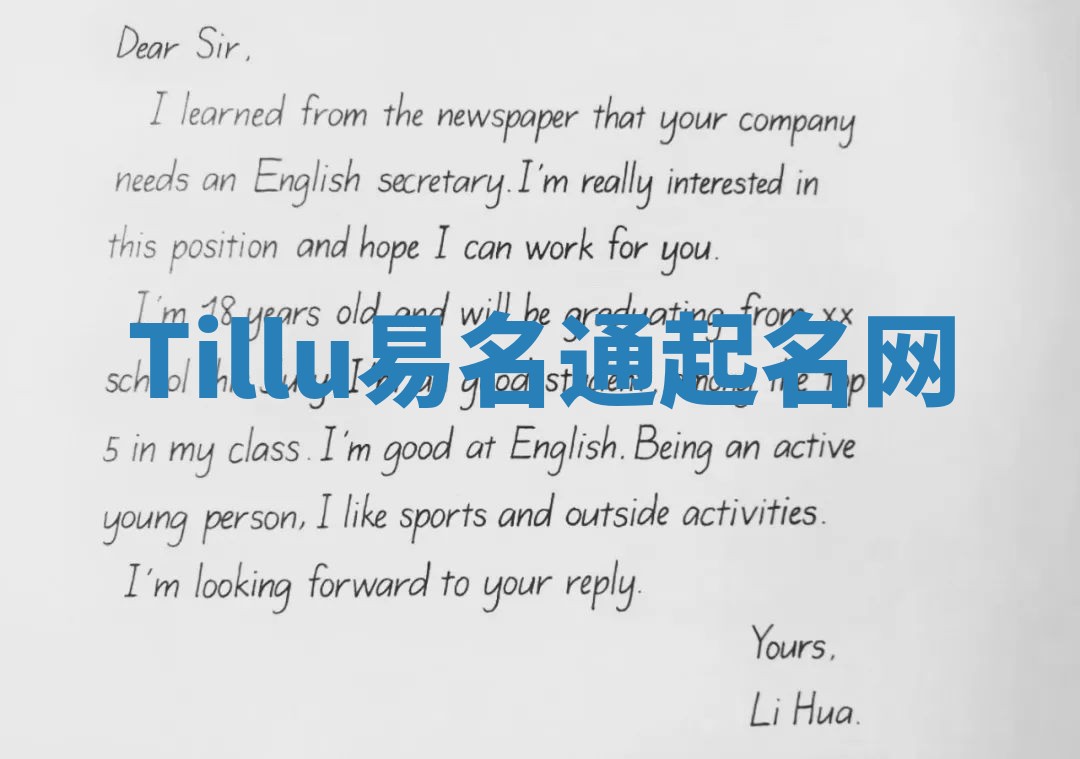 Dear Sir,
I learned from the newspaper that your company
needs an English secretary. I'm really interested in
this position and hope I can work for you.
I'm 18 years old and will be graduating from xx
Tillu易名通起名网
school this July. I'm a good student among the top
5 in my class. I'm good at English. Being an active
young person, I like sports and outside activities.
I'm looking forward to your reply.
Yours,
Li Hua.